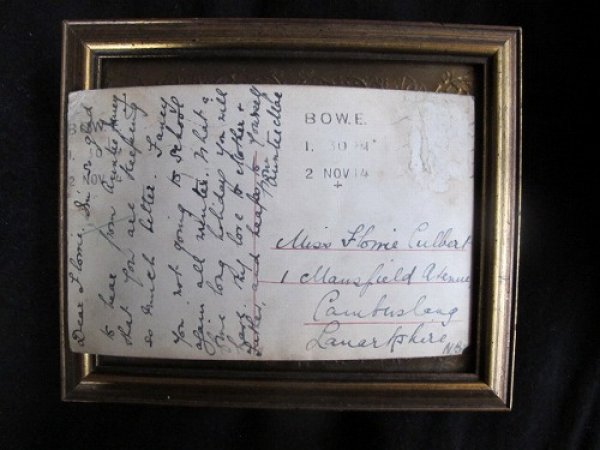 Dear Florrie. Im so glad
to hear from Auntie
that you are keeping
so much better. Fancy
you not going to School
again all winter. What a
fine long holiday you will
have. My love to Mother &
Father, and heaps to yourself
from
Auntie
BOW.E.
1. 30 P
2 NOV 14
BOW.E.
1. 30
2 NOV
Miss Florrie Culbert
1 Mansfield Avenue
Cambuslang
Lanarkshire
N.B.